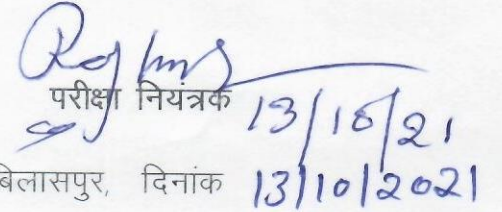 परीक्षा नियंत्रक
13/10/21
बिलासपुर, दिनांक 13/10/2021